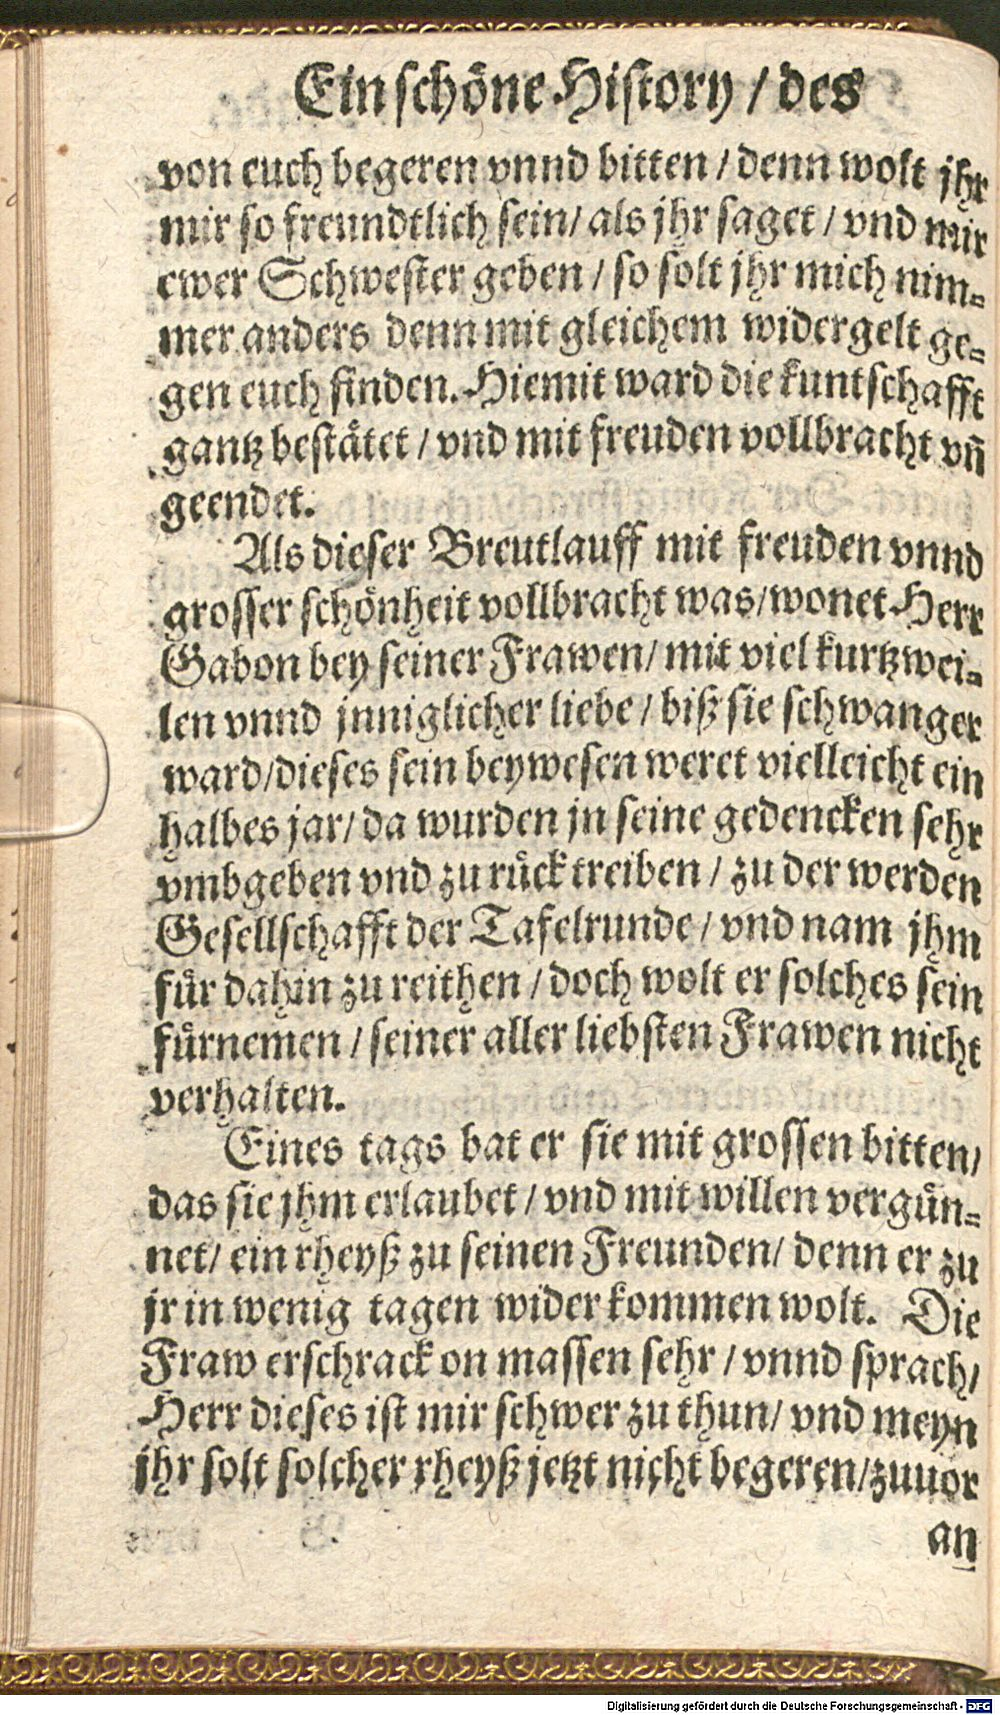 Ein schöne History / des
von euch begeren vnnd bitten / denn wolt jhr
mir so freundtlich sein / als jhr saget / vnd mir
ewer Schwester geben / so solt jhr mich nim⸗
mer anders denn mit gleichem widergelt ge⸗
gen euch finden. Hiemit ward die kuntschafft
gantz bestätet / vnd mit freuden vollbracht vñ
geendet.
Als dieser Breutlauff mit freuden vnnd
grosser schönheit vollbracht was / wonet Herr
Gabon bey seiner Frawen / mit viel kurtzwei⸗
len vnnd jnniglicher liebe / biß sie schwanger
ward / dieses sein beywesen weret vielleicht ein
halbes jar / da wurden jn seine gedencken sehr
vmbgeben vnd zu rück treiben / zu der werden
Gesellschafft der Tafelrunde / vnd nam jhm
für dahin zu reithen / doch wolt er solches sein
fürnemen / seiner aller liebsten Frawen nicht
verhalten.
Eines tags bat er sie mit grossen bitten /
das sie jhm erlaubet / vnd mit willen vergün⸗
net / ein rheyß zu seinen Freunden / denn er zu
jr in wenig tagen wider kommen wolt. Die
Fraw erschrack on massen sehr / vnnd sprach /
Herr dieses ist mir schwer zu thun / vnd meyn
jhr solt solcher rheyß jetzt nicht begeren / zuuor
an
Digitalisierung gefördert durch die Deutsche Forschungsgemeinschaft - DFG